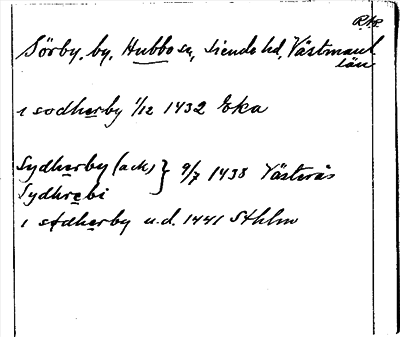 RAP
Sörby, by, Hubbo sn, Siende hd, Västmanl.
län
i sodherby 1/12 1432 Eka
Sydherby (ack) } 9/7 1438 Västerås
Sydhrebi
i stdherby u.d. 1441 Sthlm